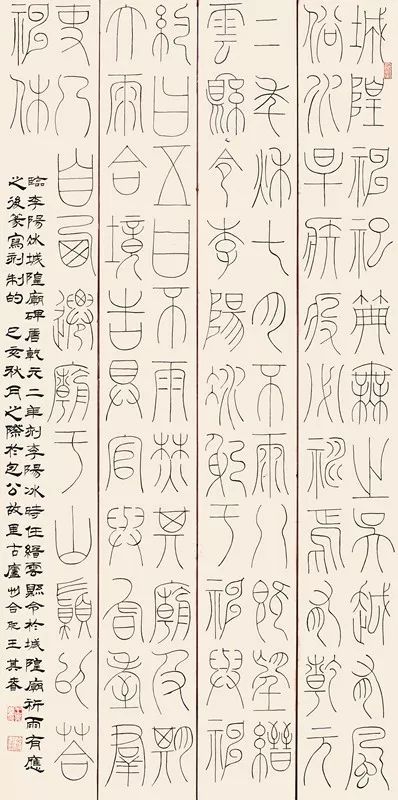 城隍神祀典無之吳越有風
俗水旱疾疫必禱焉有乾元
二年秋七月不雨八既望縉
雲縣令李陽冰躬于神與神
約曰五日不雨焚其廟及期
大雨合境告具官與耆耋群
吏乃自西遷廟于山巔以答
神休
臨李陽冰城隍廟碑唐乾元二年刻李陽冰時任縉雲縣令於城隍廟祈雨有應
之後篆寫刻制的己亥秋月之際於包公故里古廬州合肥王其春